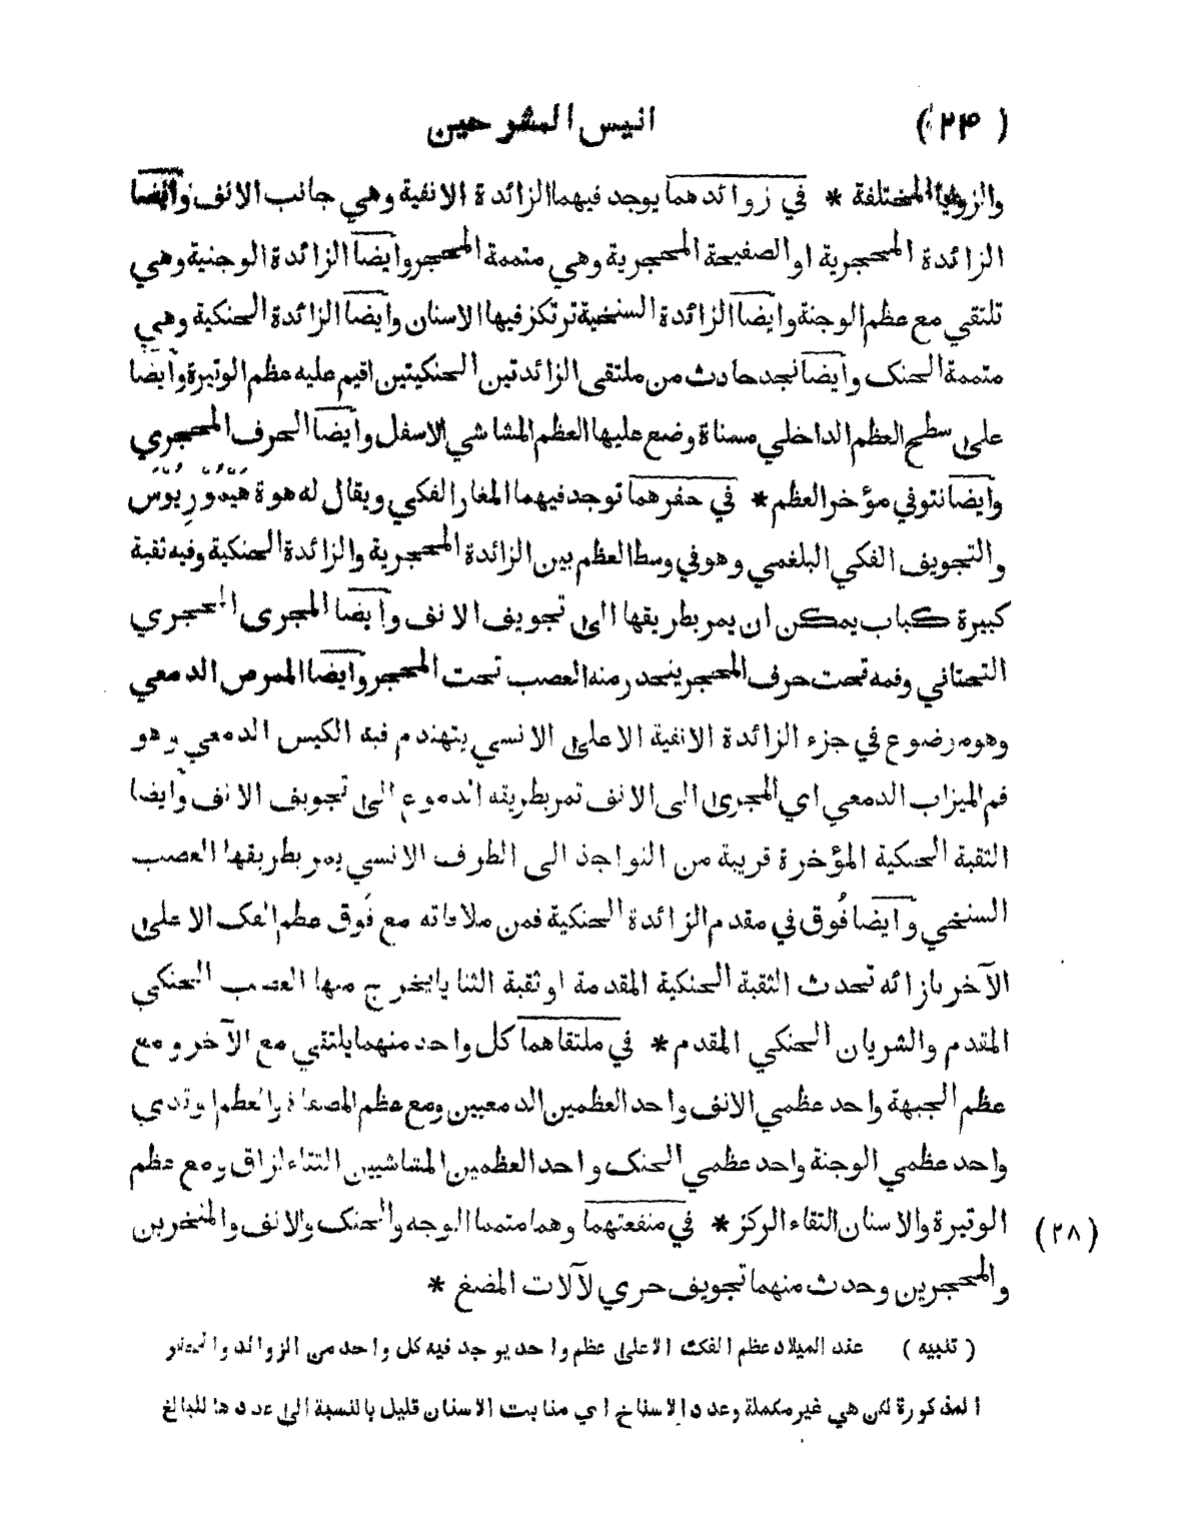 ( ٢۴ ) انيس المشرحين
والزوايا المختلفة * في زوائدهما يوجد فيهما الزائدة الانفية وهي جانب الانف وايضا
الزائدة المحجرية او الصفيحة المحجرية وهي متممة المحجر وايضا الزائدة الوجنية وهي
تلتقي مع عظم الوجنة وايضا الزائدة السنخية ترتكز فيها الاسنان وايضا الزائدة الحنكية وهي
متممة الحنك وايضا نجد حادث من ملتقى الزائدتين الحنكيتين اقيم عليه عظم الوتيرة وايضا
على سطح العظم الداخلي مسناة وضع عليها العظم المشاشي الاسفل وايضا الحرف المحجري
وايضا نتو في مؤخر العظم * في حفرهما توجد فيهما المغار الفكي ويقال له هوة هَيْمُوْرِيُوْسْ
والتجويف الفكي البلغمي وهو في وسط العظم بين الزائدة المحجرية والزائدة الحنكية وفيه ثقبة
كبيرة كباب يمكن ان يمر بطريقها الى تجويف الانف وايضا المجرى المحجري
التحتاني وفمه تحت حرف المحجر ينحدر منه العصب تحت المحجر وايضا الممرص الدمعي
وهو موضوع في جزء الزائدة الانفية الاعلى الانسي يتهندم فيه الكيس الدمعي وهو
فم الميزاب الدمعي اي المجرى الى الانف تمر بطريقه الدموع الى تجويف الانف وايضا
الثقبة الحنكية المؤخرة قريبة من النواجذ الى الطرف الانسي يمر بطريقها العصب
السنخي وايضا فُوق في مقدم الزائدة الحنكية فمن ملاقاته مع فُوق عظم الفك الاعلى
الآخر بازائه تحدث الثقبة الحنكية المقدمة او ثقبة الثنايا يخرج منها العصب الحنكي
المقدم والشريان الحنكي المقدم * في ملتقاهما كل واحد منهما يلتقي مع الآخر ومع
عظم الجبهة واحد عظمي الانف واحد العظمين الدمعيين ومع عظم المصفاة والعظم الوتدي
واحد عظمي الوجنة واحد عظمي الحنك واحد العظمين المشاشيين التقاء لزاق ومع عظم
الوتيرة والاسنان التقاء الركز * في منفعتهما وهما متمما الوجه والحنك والانف والمنخرين (٢٨)
والمحجرين وحدث منهما تجويف حري لآلات المضغ *
( تنبيه ) عند الميلاد عظم الفك الاعلى عظم واحد يوجد فيه كل واحد من الزوائد والحفر
المذكورة لكن هي غير مكملة وعدد الاسناخ اي منابت الاسنان قليل بالنسبة الى عددها للبالغ